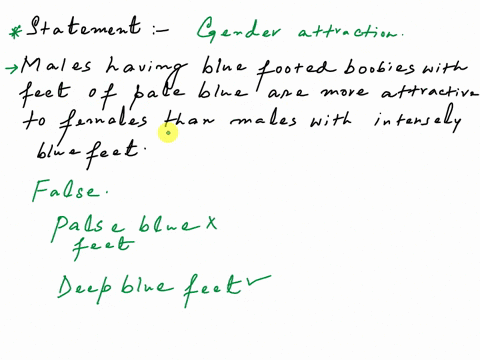 * Statement :- Gender attraction.
→ Males having blue footed boobies with
feet of pale blue are more attractive
to females than males with intensely
blue feet.
False.
Palse blue ×
feet
Deep blue feet ✓